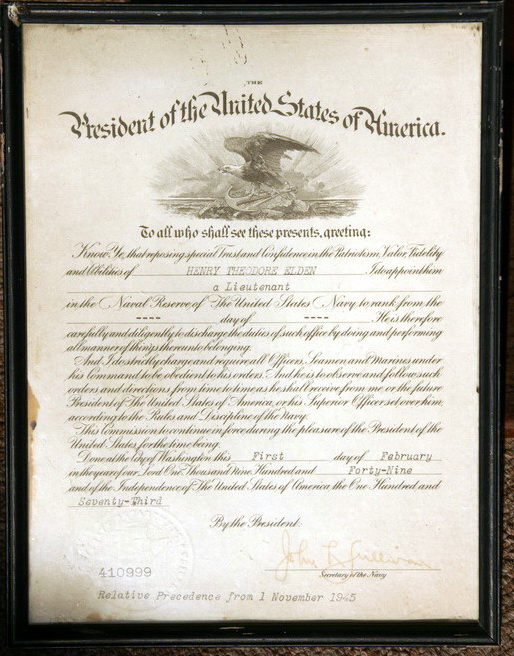 THE
President of the United States of America.
To all who shall see these presents, greeting:
Know Ye, that reposing special Trust and Confidence in the Patriotism, Valor, Fidelity
and Abilities of HENRY THEODORE ELDEN I do appoint him
a Lieutenant
in the Naval Reserve of The United States Navy to rank from the
---- day of ---- He is therefore
carefully and diligently to discharge the duties of such office by doing and performing
all manner of things thereunto belonging.
And I do strictly charge and require all Officers, Seamen and Marines under
his Command to be obedient to his orders. And he is to observe and follow such
orders and directions from time to time as he shall receive from me, or the future
President of The United States of America, or his Superior Officer set over him,
according to the Rules and Discipline of the Navy.
This Commission to continue in force during the pleasure of the President of the
United States, for the time being.
Done at the City of Washington this First day of February
in the year of our Lord One Thousand Nine Hundred and Forty-Nine
and of the Independence of The United States of America the One Hundred and
Seventy-Third
By the President:
John L Sullivan
Secretary of the Navy
410999
Relative Precedence from 1 November 1945